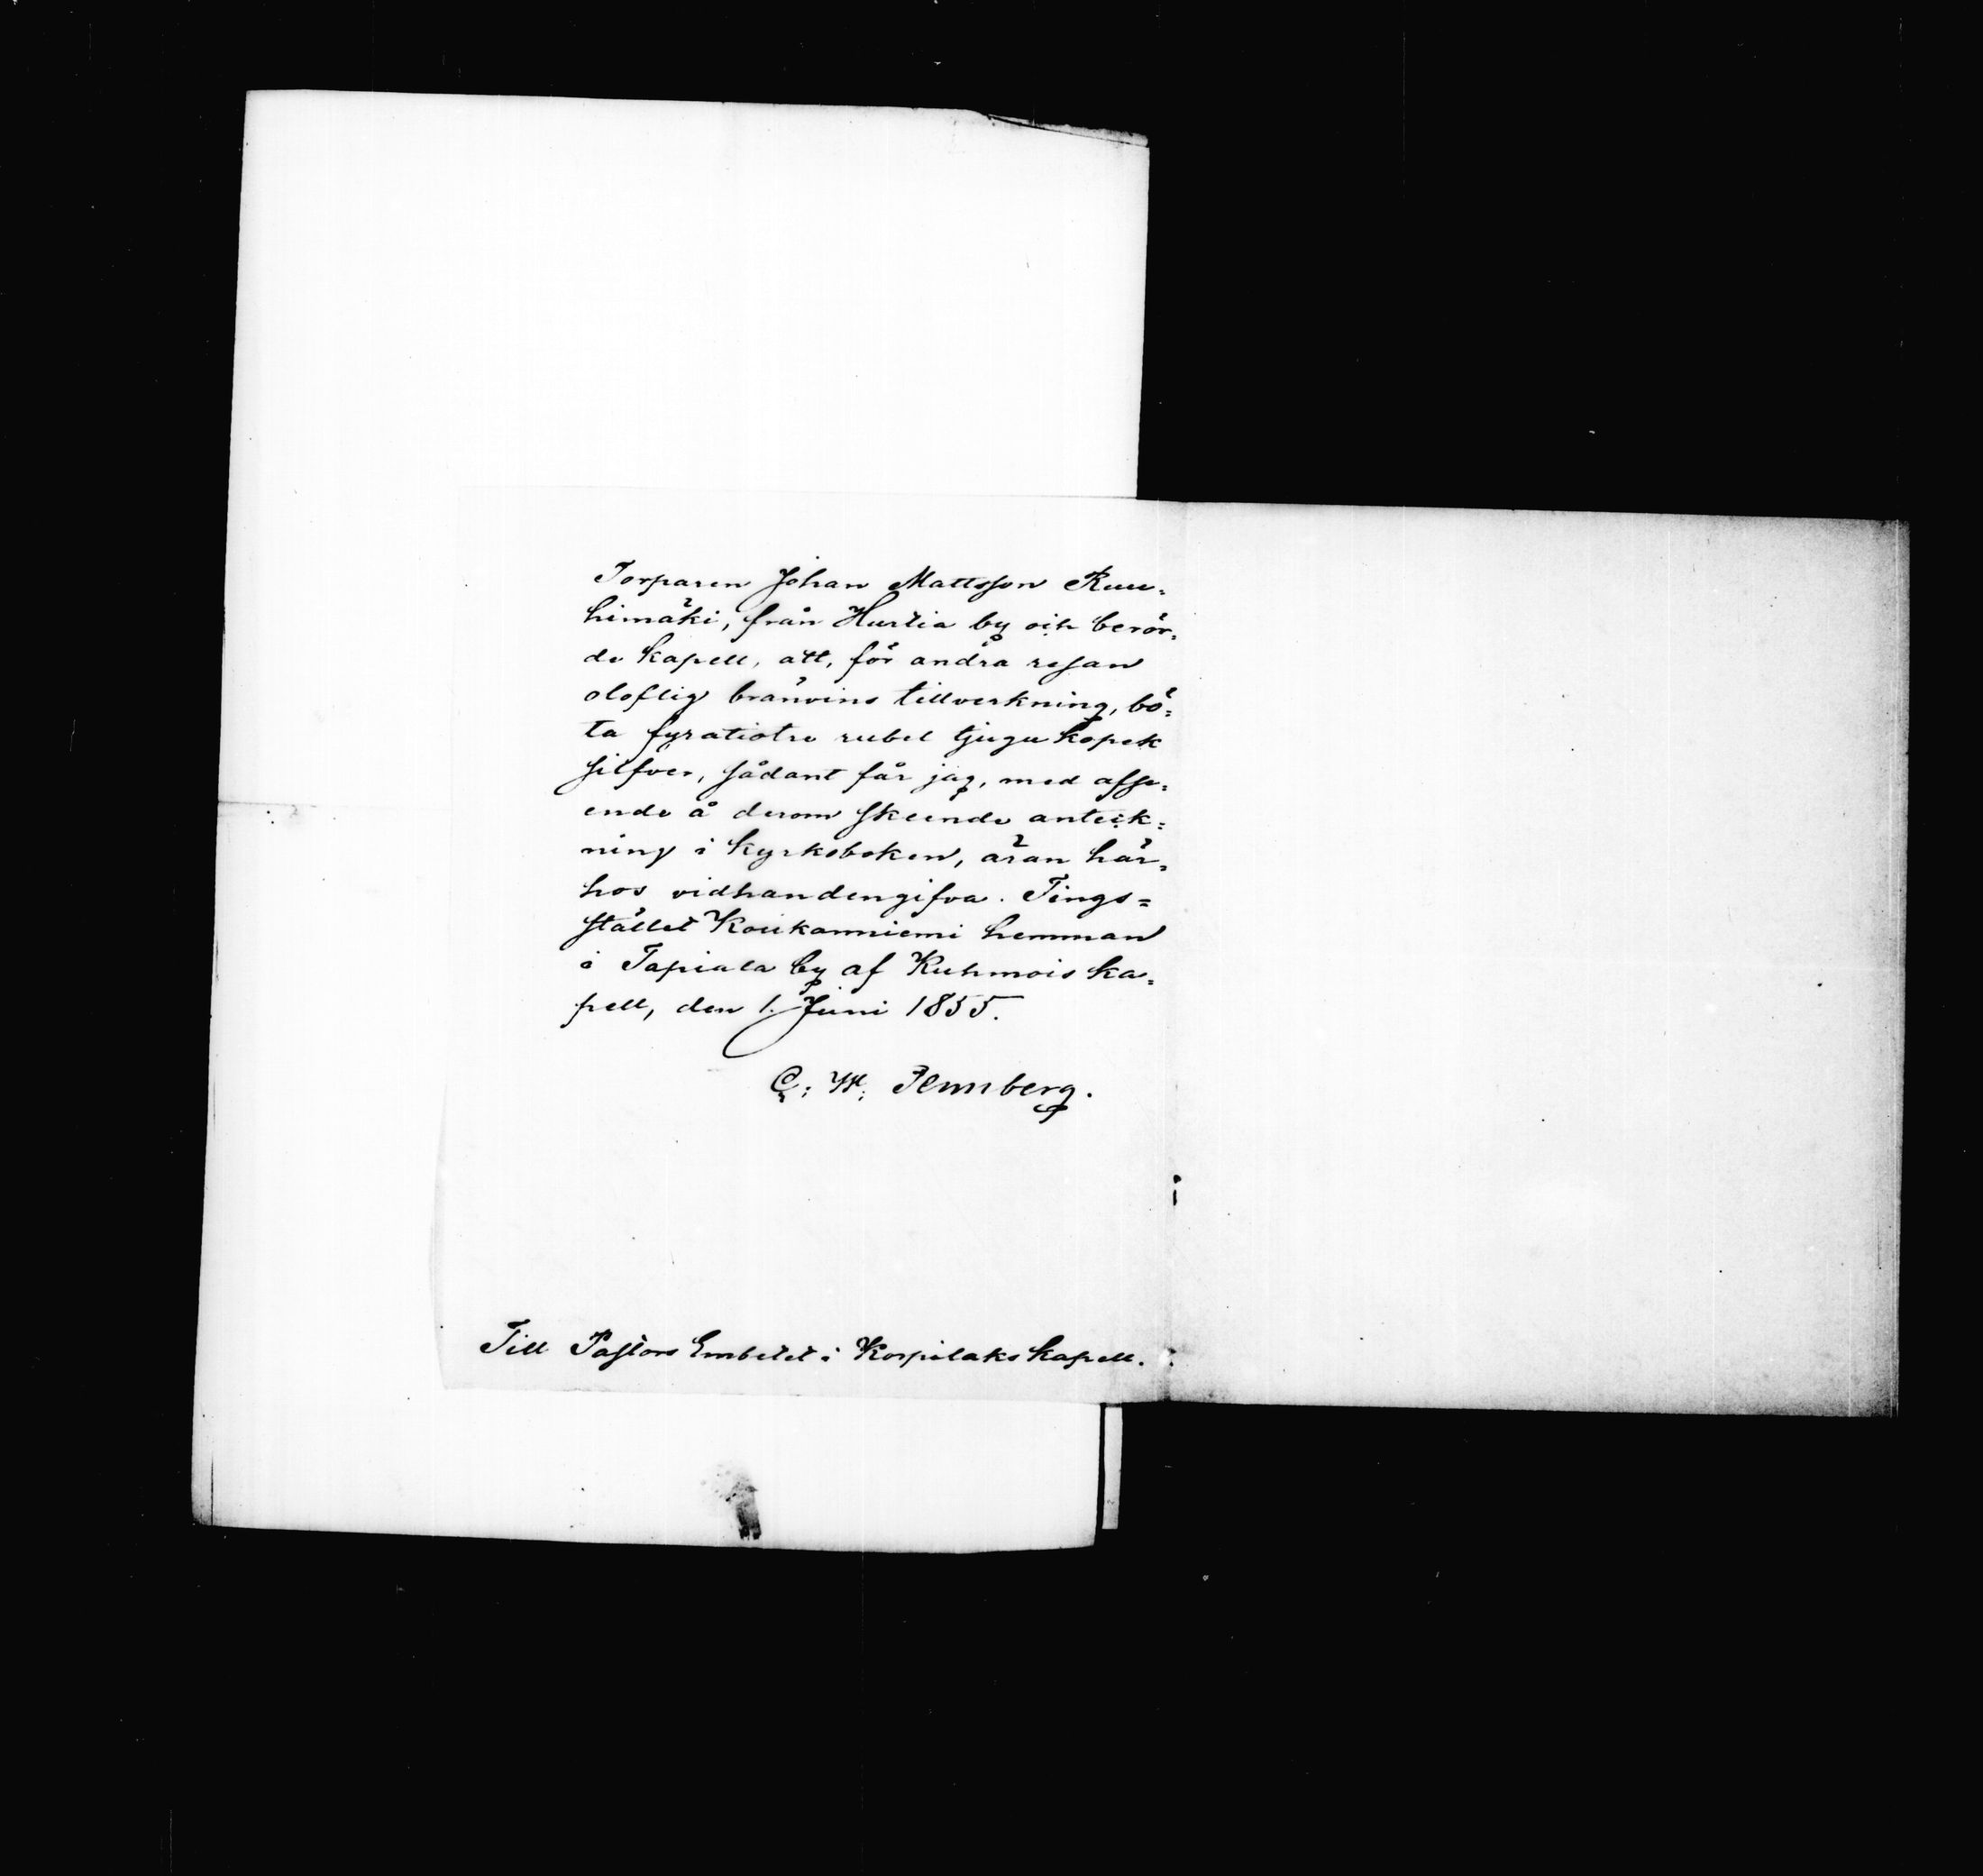 Torparen Johan Mattsson Ruu-
himäki, från Hurtia by och berör-
de kapell, att, för andra resan
oloflig bränvins tillverkning, bö-
ta fyratiotre rubel tjugu kopek
silfver, sådant får jag, med afse-
ende å derom skeende anteck-
ning i kyrkoboken, äran här-
hos vidhandengifva. Tings=
stället Koukanniemi hemman
i Tapiala by af Kuhmois ka-
pell, den 1. Juni 1855.
C: W:
Till Pastors Embetet i Korpilaks kapell.